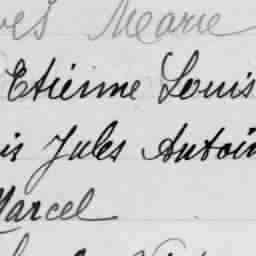 Marie
Etienne Louis
Jules Antoin
Marcel